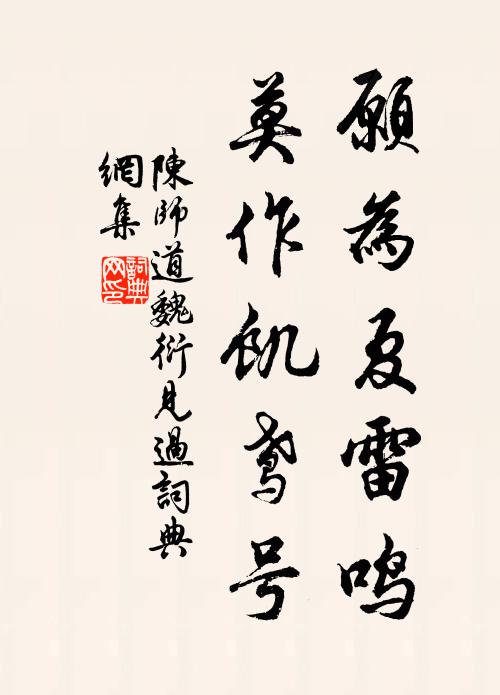 願為夏雷鳴
莫作飢鸢号
陳師道魏衍見過詞典
網集
詞典網印